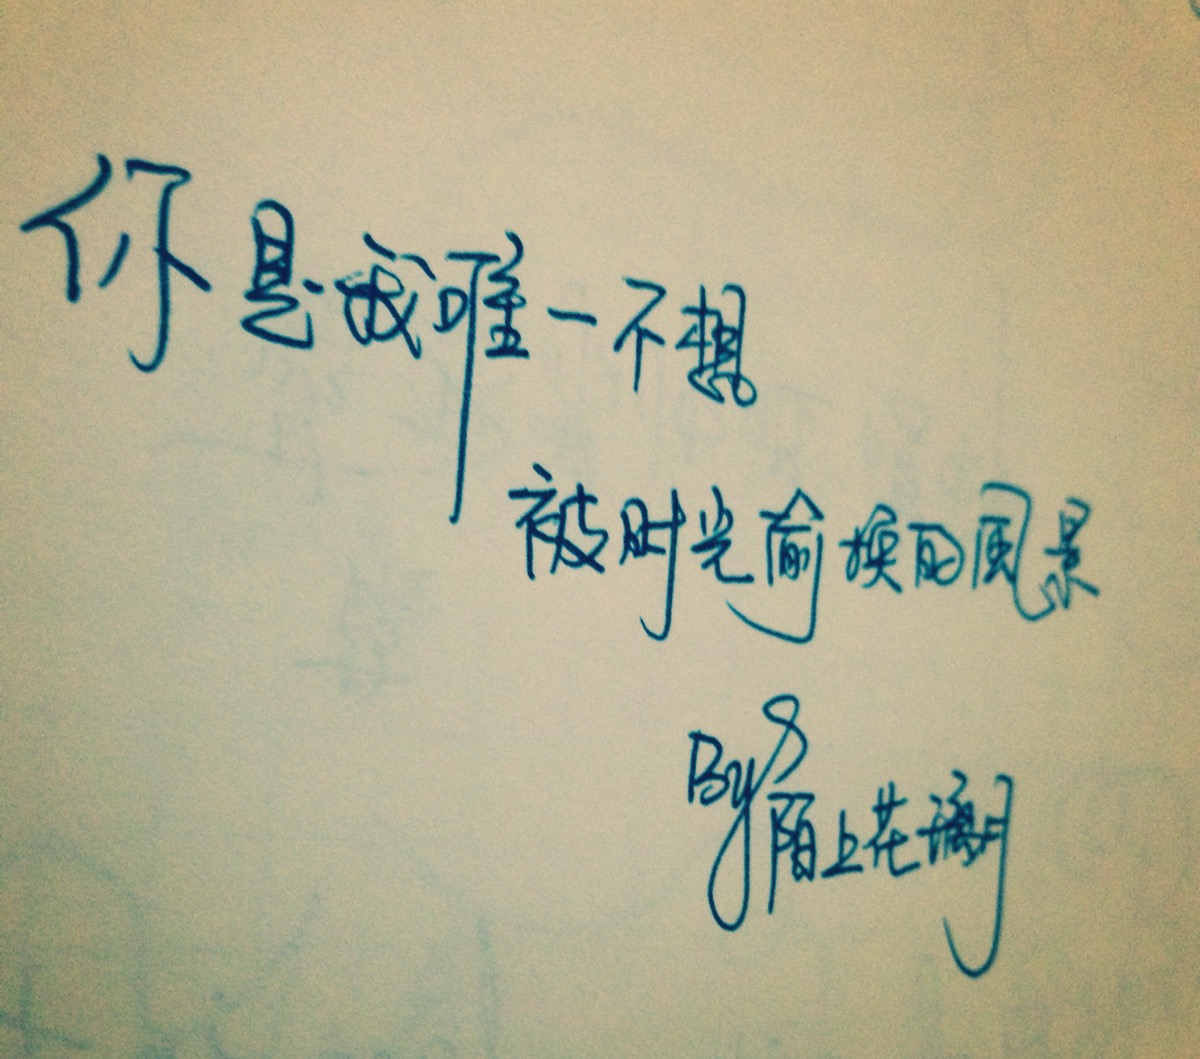 你是我唯一不想
被时光偷换的风景
By 陌上花